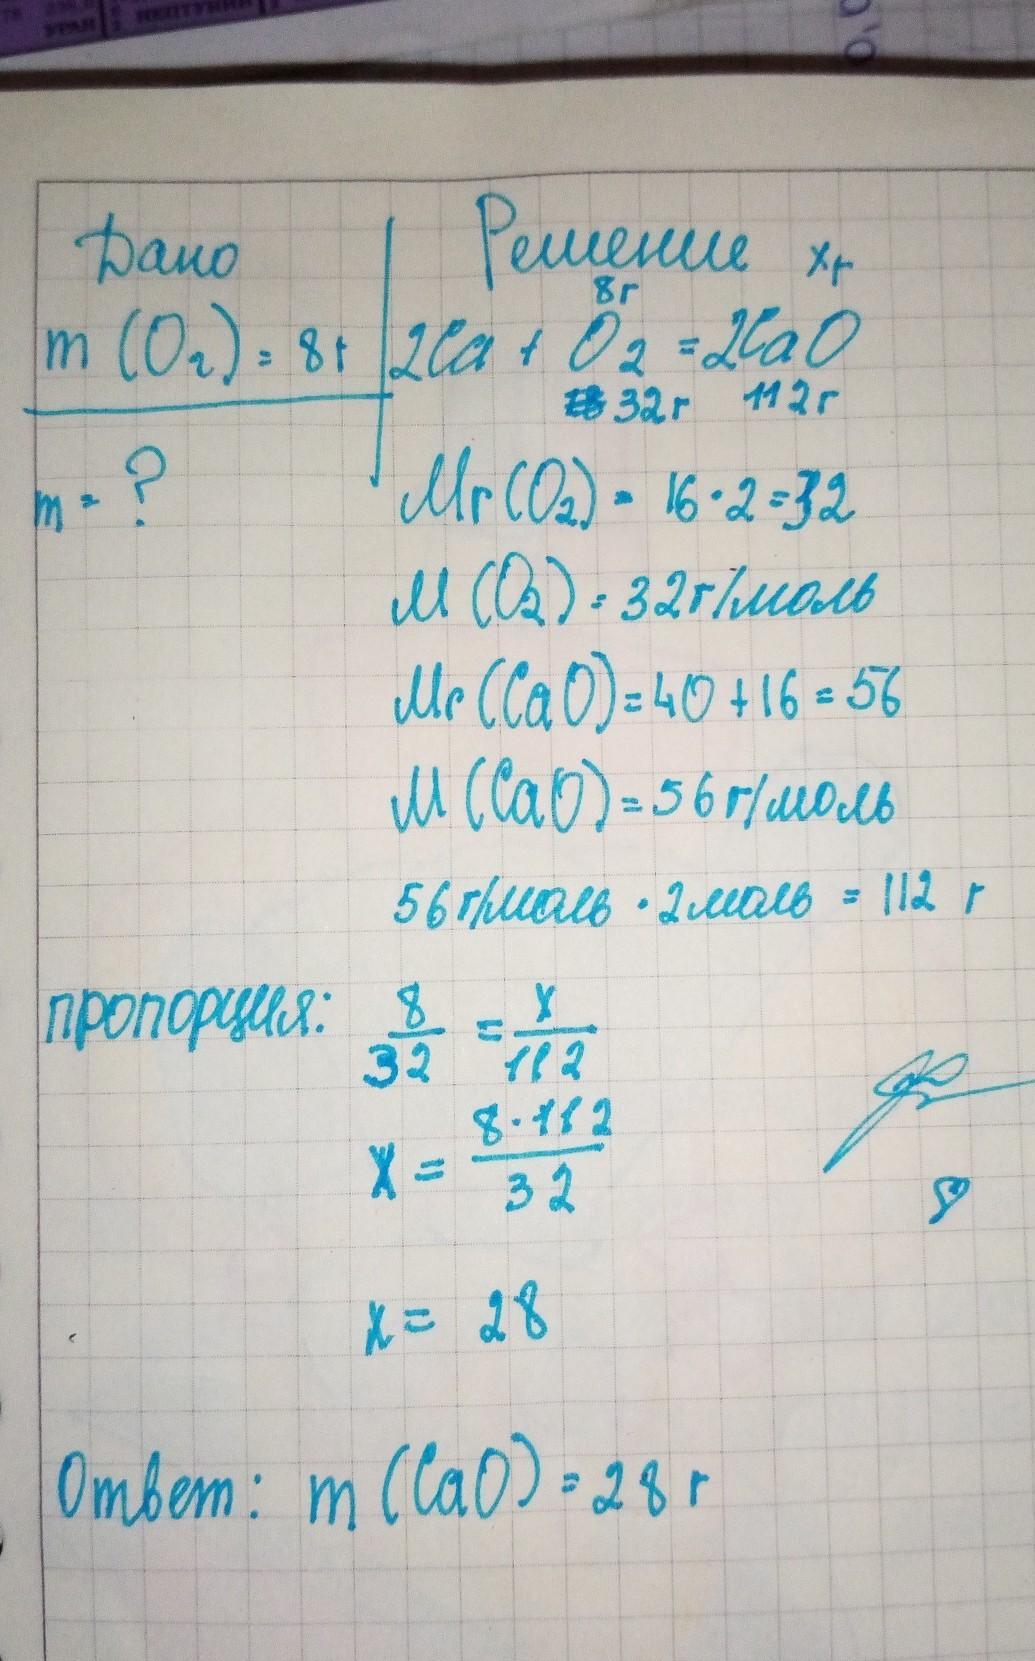 УРАН НЕПТУНИЙ
Дано
Решение xг
8г
m (O2) = 8г
2Ca + O2 = 2CaO
32г 112г
m = ?
Mr(O2) = 16·2=32
M(O2) = 32г/моль
Mr(CaO)=40+16=56
M(CaO)=56г/моль
56г/моль · 2моль = 112 г
пропорция: 8/32 = x/112
x = 8·112/32
x = 28
Ответ: m (CaO) = 28 г